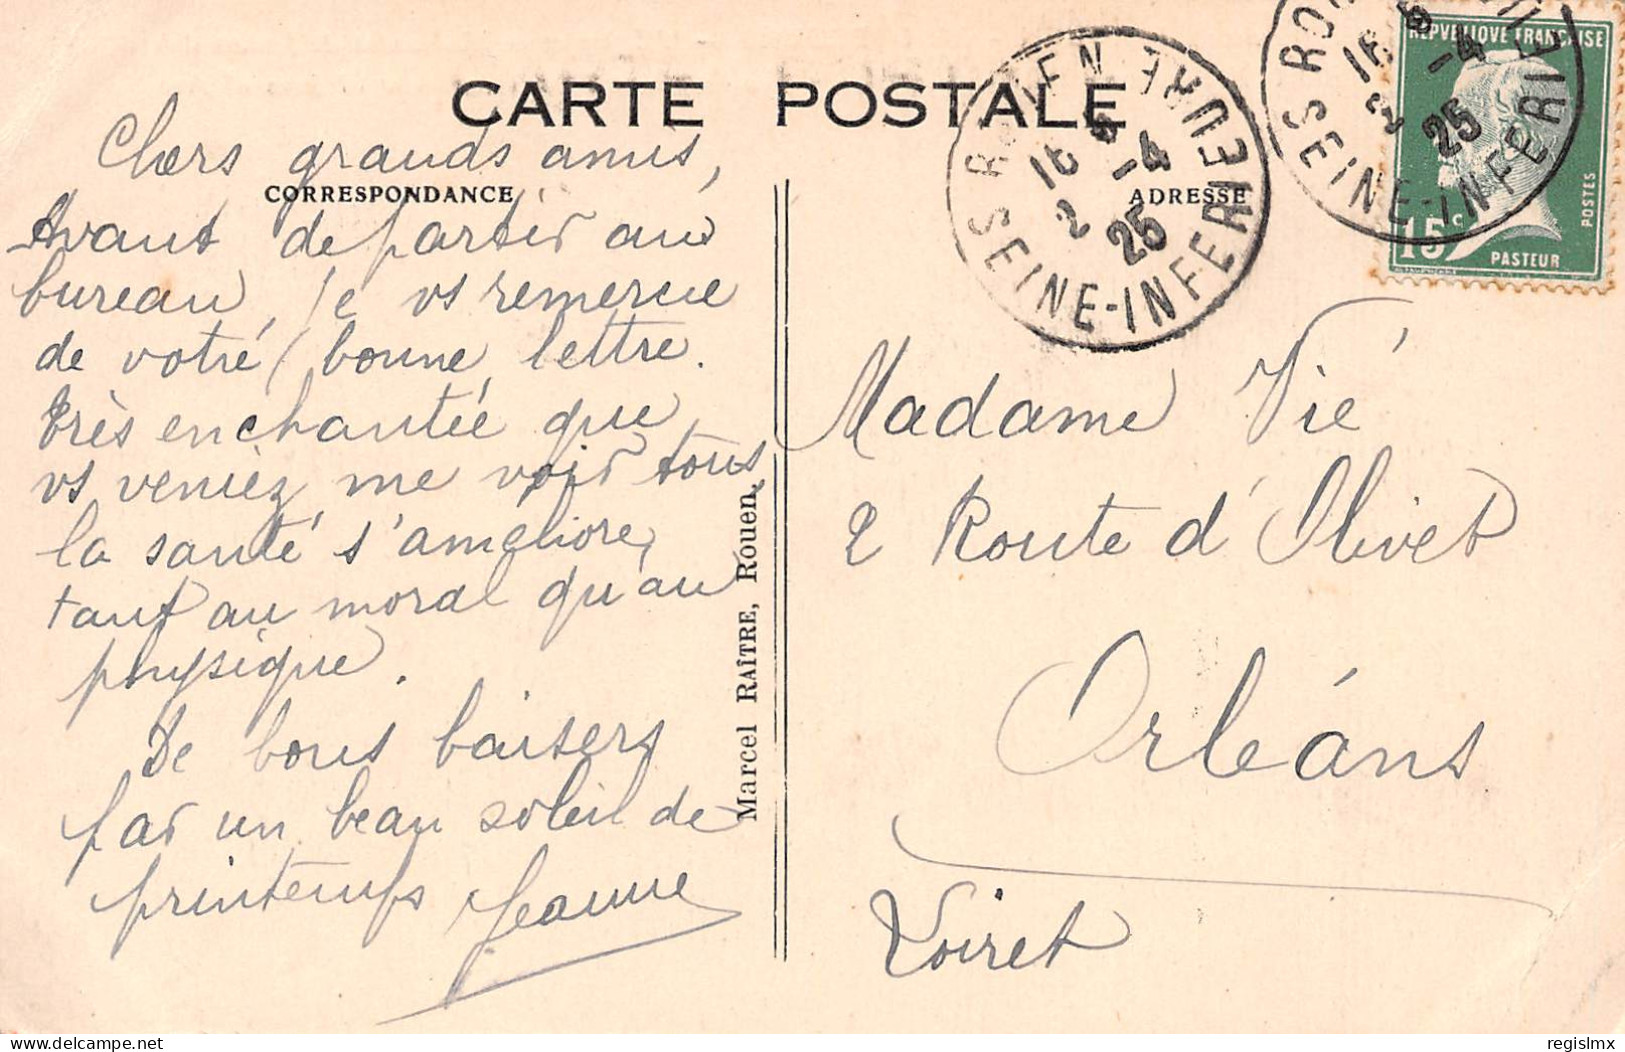 CARTE POSTALE
CORRESPONDANCE
Chers grands amis,
Avant de partir au
bureau, je vs remercie
de votre bonne lettre.
très enchantée que
vs veniez me voir tous,
la santé s'améliore,
tant au moral qu'au
physique.
De bons baisers
par un beau soleil de
printemps Jeanne
Marcel RAÎTRE, Rouen.
ADRESSE
ROUEN GARE
16
5 -4
2
25
SEINE-INFERIEURE
16
5 -4
25
SEINE-INFERIE
REPVBLIQVE FRANÇAISE
POSTES
15c
PASTEUR
Madame Vié
2 Route d'Olivet
Orléans
Loiret
Delcampe.net
regislmx